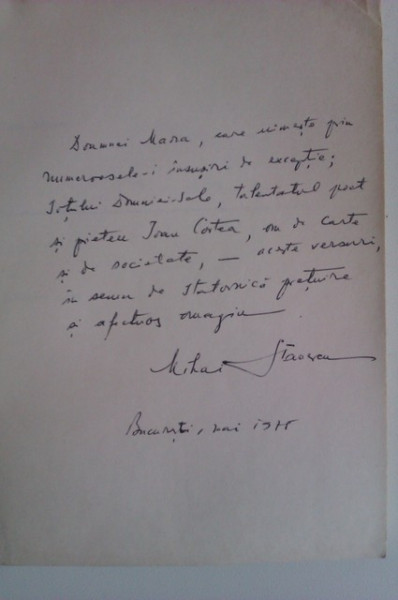 Doamnei Mara, care uimește prin
numeroasele-i însușiri de excepție;
Soțului Domniei-Sale, talentatul poet
și prieten Ioan Costea, om de carte
și de societate, — aceste versuri,
în semn de statornică prețuire
și afectuos omagiu
Mihai
București, mai